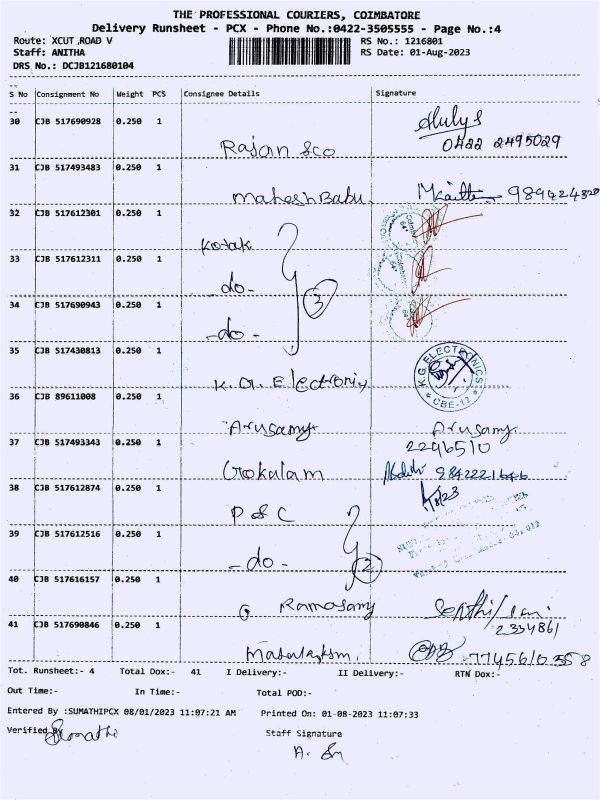 THE PROFESSIONAL COURIERS, COIMBATORE
Delivery Runsheet - PCX - Phone No.:0422-3505555 - Page No.:4
Route: XCUT ,ROAD V RS No.: 1216801
Staff: ANITHA RS Date: 01-Aug-2023
DRS No.: DCJB121680104
S No Consignment No Weight PCS Consignee Details Signature
30 CJB 517690928 0.250 1
Rajan sco 0422 2495029
31 CJB 517493483 0.250 1
Mahesh Babu
32 CJB 517612301 0.250 1
Kotak
33 CJB 517612311 0.250 1
-do- 3
34 CJB 517690943 0.250 1
-do-
35 CJB 517430813 0.250 1
K.G. Electronix K.G ELECTRONICS CBE-12
36 CJB 89611008 0.250 1
Arusamy Arusamy
37 CJB 517493343 0.250 1 2296510
Gokalam 9842221646
38 CJB 517612874 0.250 1
P & C
39 CJB 517612516 0.250 1
-do- 2
40 CJB 517616157 0.250 1
Ramasamy
41 CJB 517690846 0.250 1 2334861
7745610358
Tot. Runsheet:- 4 Total Dox:- 41 I Delivery:- II Delivery:- RTN Dox:-
Out Time:- In Time:- Total POD:-
Entered By :SUMATHIPCX 08/01/2023 11:07:21 AM Printed On: 01-08-2023 11:07:33
Verified By Staff Signature